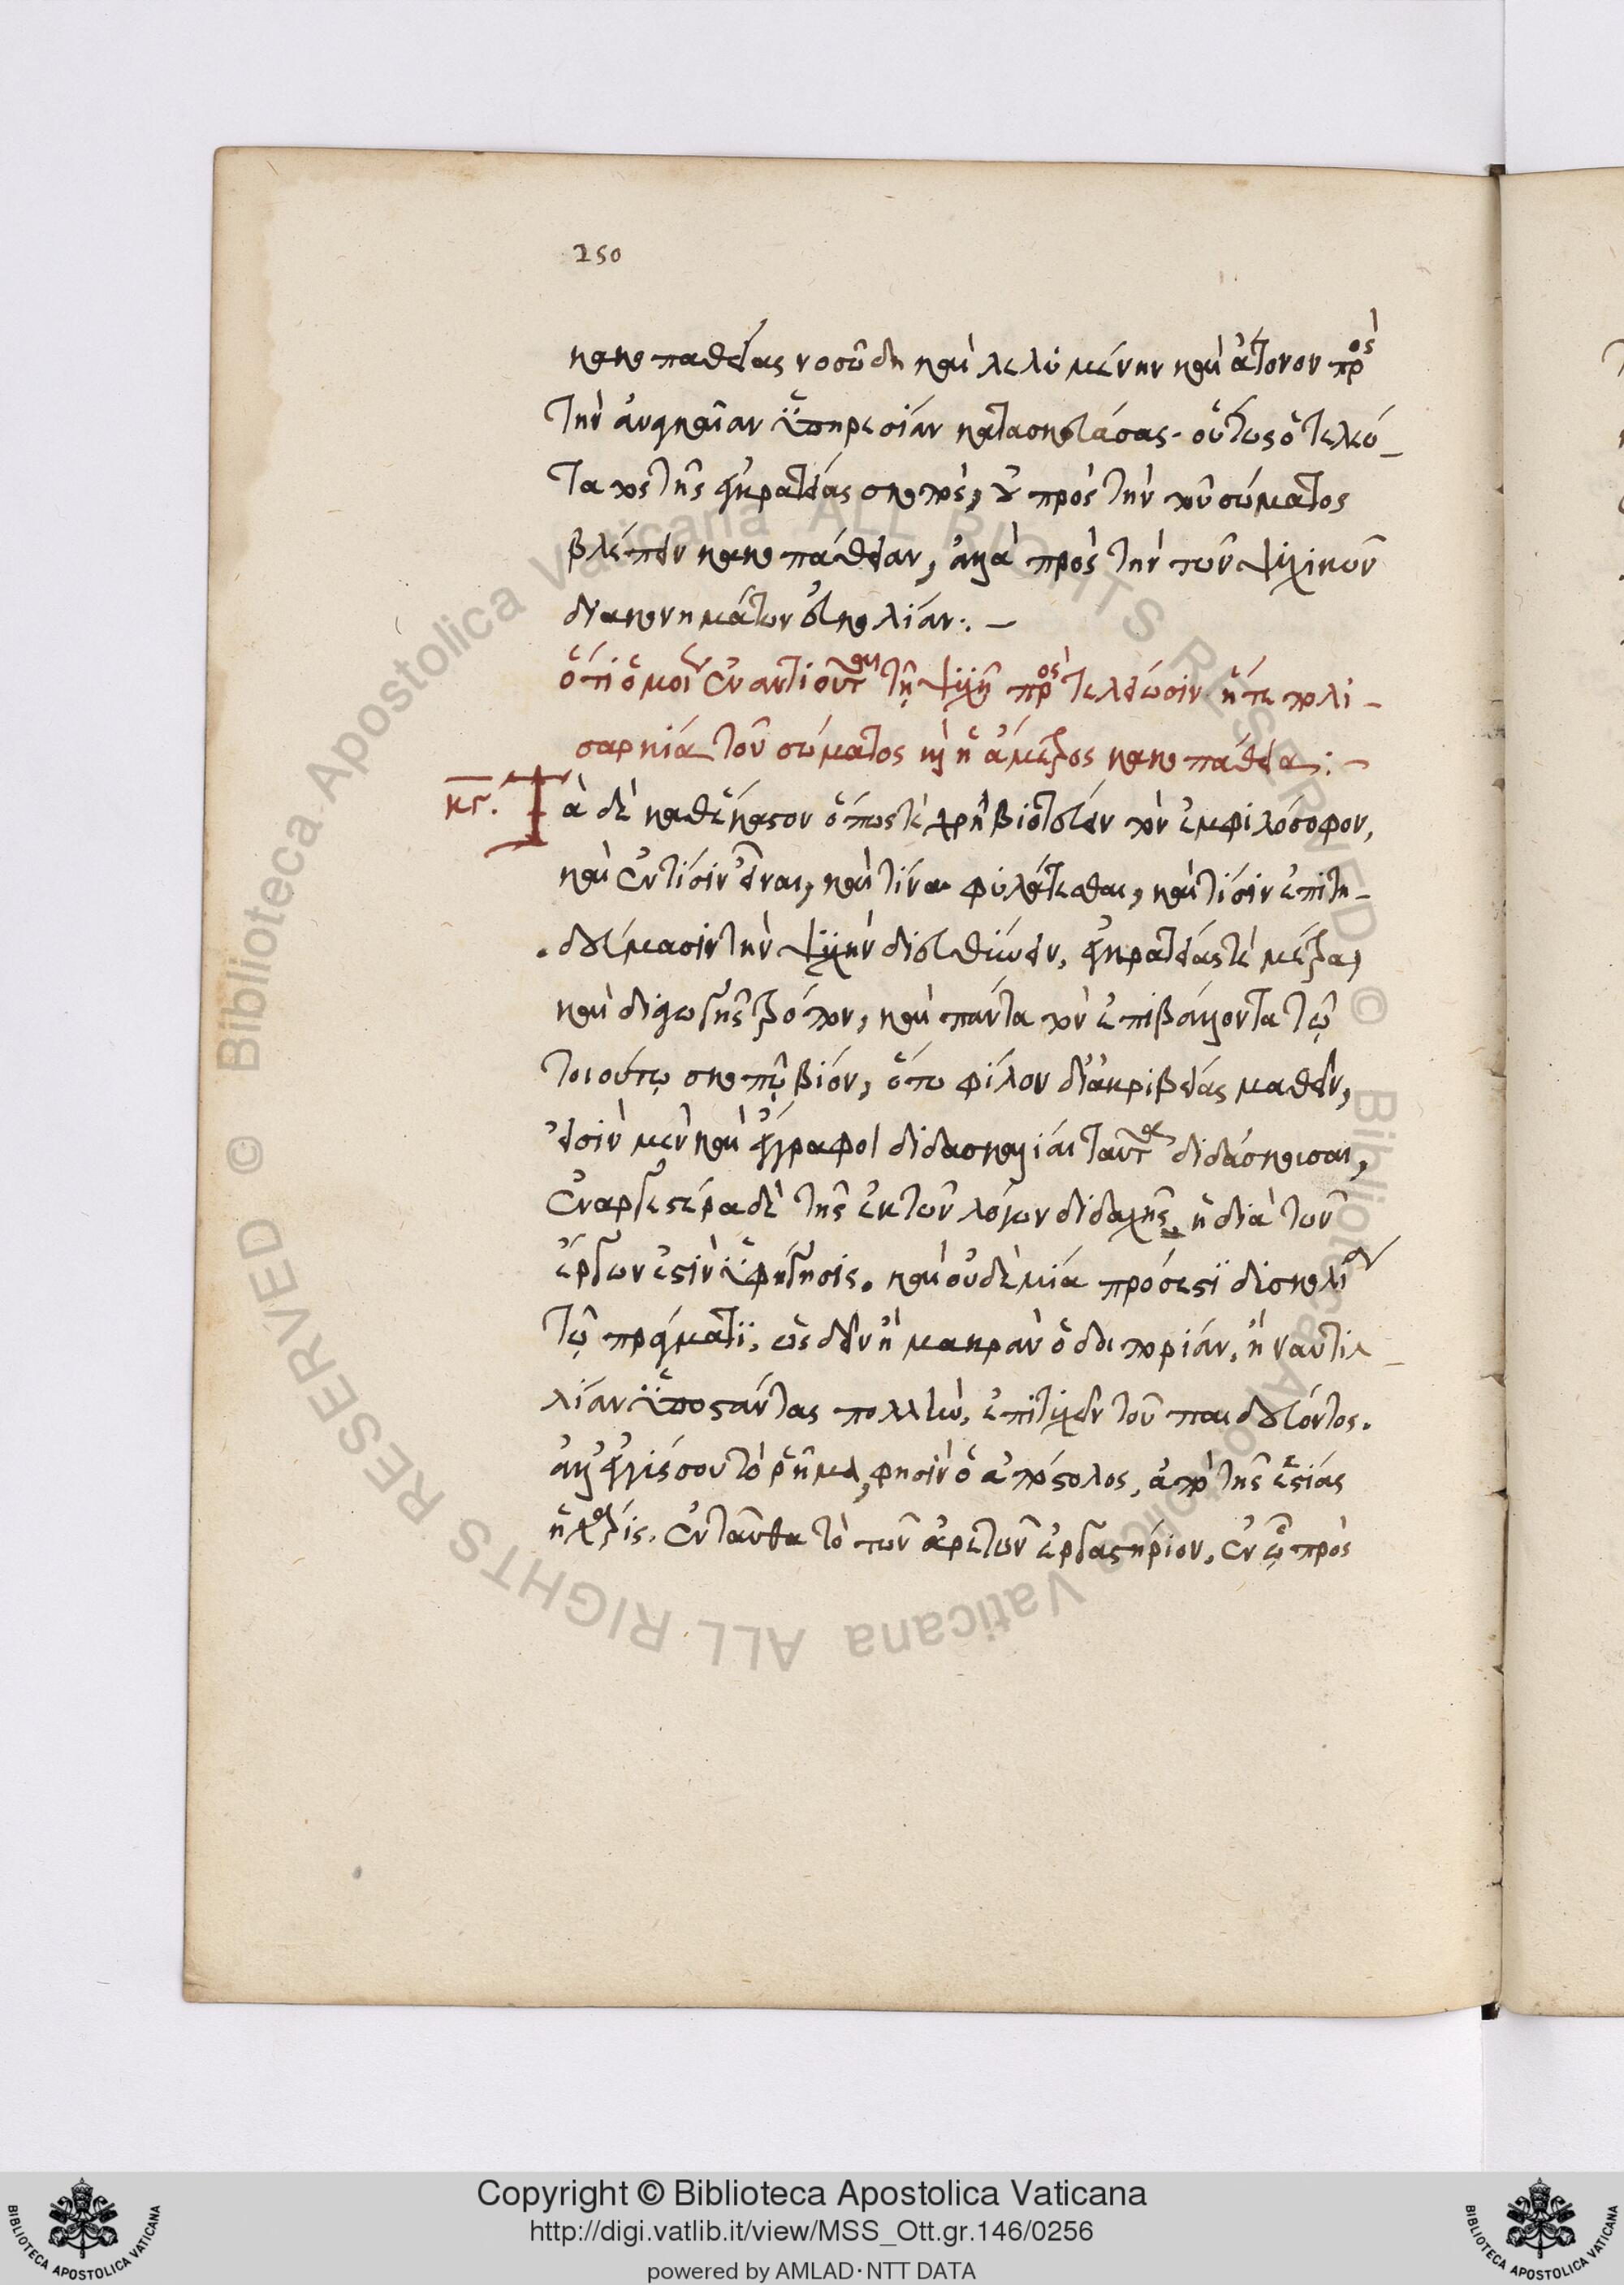 250
κακοπαθείας νοσώδη καὶ λελυμένην καὶ ἄτονον πρὸς
τὴν ἀναγκαίαν ὑπηρεσίαν κατασκευάσας. οὕτως ὁ τελεώ-
τατος τῆς ἐγκρατείας σκοπὸς, οὐ πρὸς τὴν τοῦ σώματος
βλέπειν κακοπάθειαν, ἀλλὰ πρὸς τὴν τῶν ψυχικῶν
διακονημάτων εὐκολίαν:. –
ὅτι ὁμοίως ἐναντιοῦται τῇ ψυχῇ πρὸς τελείωσιν ἥτε πολυ-
σαρκία τοῦ σώματος καὶ ἡ ἄμετρος κακοπάθεια:. –
κγ. Τὰ δὲ καθέκαστον ὅπως τὲ χρὴ βιοτεύειν τὸν ἐμφιλόσοφον,
καὶ ἐν τίσιν εἶναι, καὶ τίνα φυλάττεσθαι, καὶ τίσιν ἐπιτη-
δεύμασιν τὴν ψυχὴν διευθύνειν, ἐγκρατείας τὲ μέτρα,
καὶ διαγωγῆς τρόπον, καὶ πάντα τὸν ἐπιβάλλοντα τῷ
τοιούτῳ σκοπῷ βίον, ὅτῳ φίλον δι ἀκριβείας μαθεῖν,
εἰσὶν μὲν καὶ ἔγγραφοι διδασκαλίαι ταῦτα διδάσκουσαι,
ἐναργεστέρα δὲ τῆς ἐκ τῶν λόγων διδαχῆς, ἡ διὰ τῶν
ἔργων ἐστὶν ὑφήγησις. καὶ οὐδὲ μία πρόσεστι δυσκολία
τῷ πράγματι, ὡς δεῖν ἢ μακρὰν ὁδοιπορίαν, ἢ ναυτιλ-
λίαν ὑποστάντας πολλὴν, ἐπιτυχεῖν τοῦ παιδεύοντος.
ἀλλ ἐγγύς σου τὸ ῥῆμα, φησὶν ὁ ἀπόστολος, ἀπὸ τῆς ἑστίας
ἡ χάρις. ἐνταῦθα τὸ τῶν ἀρετῶν ἐργαστήριον, ἐν ᾧ πρὸς
Copyright © Biblioteca Apostolica Vaticana
http://digi.vatlib.it/view/MSS_Ott.gr.146/0256
powered by AMLAD·NTT DATA
BIBLIOTECA APOSTOLICA VATICANA
BIBLIOTECA APOSTOLICA VATICANA
© Biblioteca Apostolica Vaticana ALL RIGHTS RESERVED
© Biblioteca Apostolica Vaticana ALL RIGHTS RESERVED